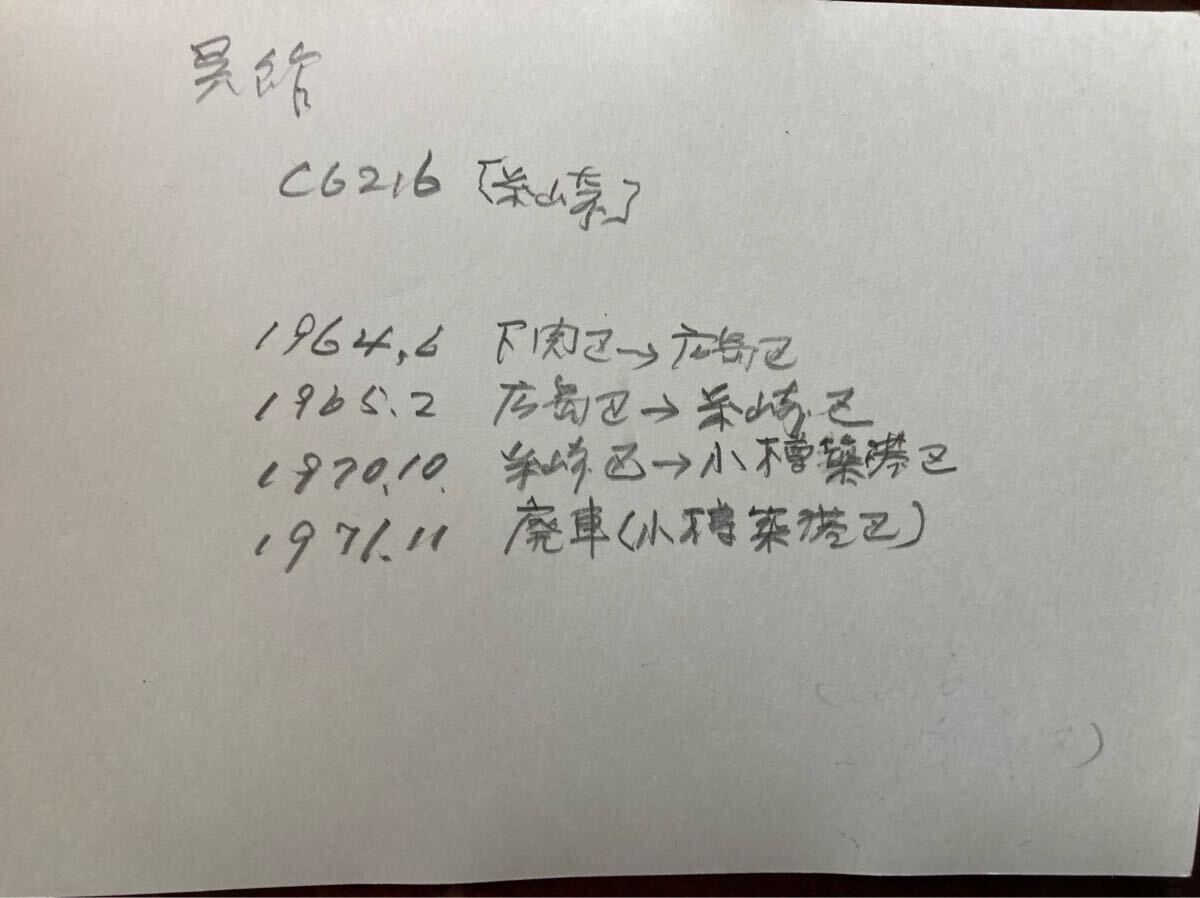 呉線
C6216 [糸崎]
1964.6 下関区→広島区
1965.2 広島区→糸崎区
1970.10. 糸崎区→小樽築港区
1971.11 廃車(小樽築港区)